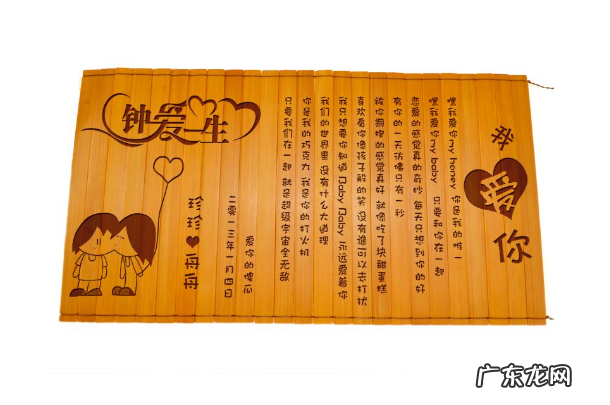 我爱你
嘿我爱你my honey 你是我的唯一
嘿我爱你my baby 只要和你在一起
恋爱的感觉真的奇妙 每天只想到你的好
有你的一天彷彿只有一秒
被你拥抱的感觉真好 就像吃了块甜蛋糕
喜欢看你像孩子般的笑 没有谁可以去打扰
我只想要你知道 Baby Baby 永远爱着你
我们的世界里 没有什么大道理
你是我的巧克力 我是你的打火机
只要我们在一起 就是超级宇宙全无敌
爱你的傻瓜
二零一三年一月四日
钟爱一生
珍珍❤舟舟
广东龙网